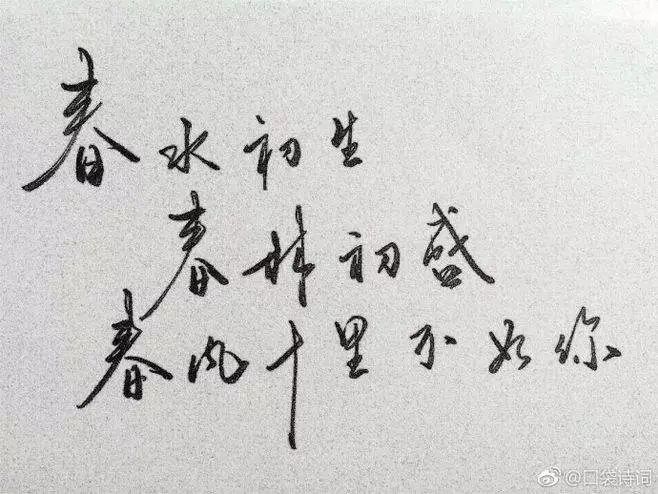 春水初生
春林初盛
春风十里不如你
@口袋诗词